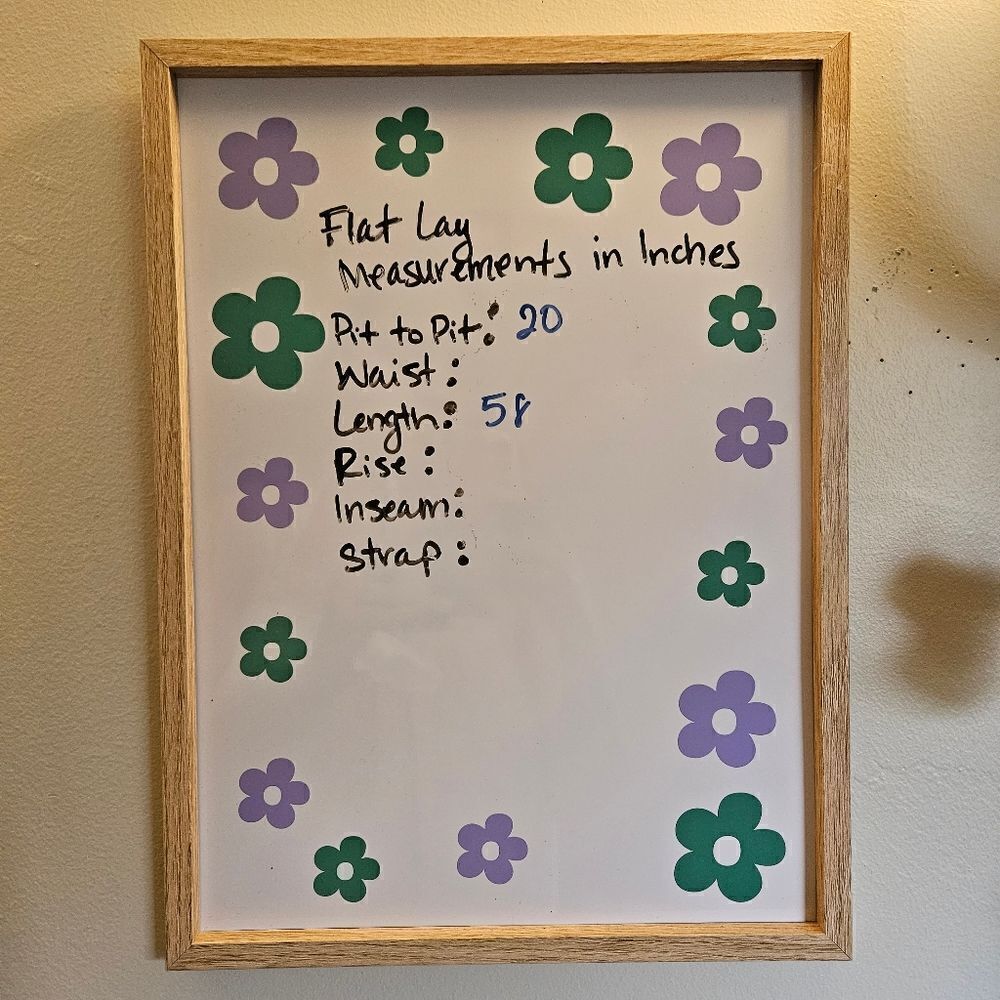 Flat Lay
Measurements in Inches
Pit to Pit: 20
Waist:
Length: 58
Rise:
Inseam:
Strap: